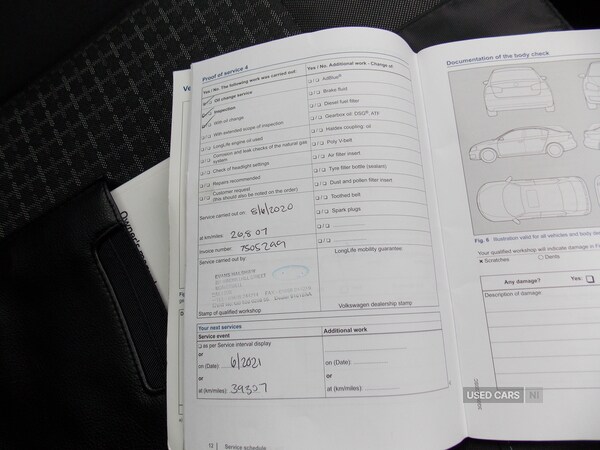 Proof of service 4
Yes / No. The following work was carried out:
Oil change service
Inspection
With oil change
With extended scope of inspection
LongLife engine oil used
Corrosion and leak checks of the natural gas
system
Check of headlight settings
Repairs recommended
Customer request
(this should also be noted on the order)
Service carried out on: 8/6/2020
at km/miles: 26,807
Invoice number: 7505299
Service carried out by:
Stamp of qualified workshop
Yes / No. Additional work - Change of:
AdBlue®
Brake fluid
Diesel fuel filter
Gearbox oil: DSG®, ATF
Haldex coupling: oil
Poly V-belt
Air filter insert
Tyre filler bottle (sealant)
Dust and pollen filter insert
Toothed belt
Spark plugs
LongLife mobility guarantee
Volkswagen dealership stamp
Your next services
Service event
as per Service interval display
or
on (Date): 6/2021
or
at (km/miles): 39307
Additional work
on (Date):
or
at (km/miles):
12 | Service schedule
Documentation of the body check
Fig. 5 Illustration valid for all vehicles and body
Your qualified workshop will indicate damage in
× Scratches ○ Dents
Any damage? Yes:
Description of damage:
USED CARS NI